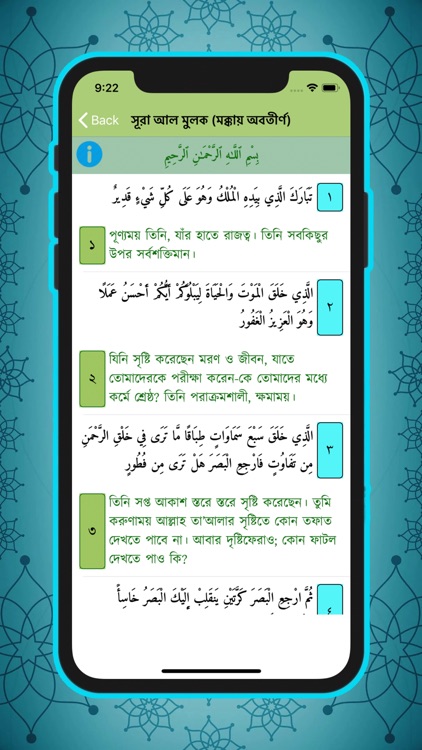 9:22
Back
সূরা আল মুলক (মক্কায় অবতীর্ণ)
i
بِسْمِ ٱللَّٰهِ ٱلرَّحْمَٰنِ ٱلرَّحِيمِ
تَبَارَكَ الَّذِي بِيَدِهِ الْمُلْكُ وَهُوَ عَلَى كُلِّ شَيْءٍ قَدِيرٌ ١
১ পূণ্যময় তিনি, যাঁর হাতে রাজত্ব। তিনি সবকিছুর
উপর সর্বশক্তিমান।
الَّذِي خَلَقَ الْمَوْتَ وَالْحَيَاةَ لِيَبْلُوَكُمْ أَيُّكُمْ أَحْسَنُ عَمَلًا ٢
وَهُوَ الْعَزِيزُ الْغَفُورُ
২ যিনি সৃষ্টি করেছেন মরণ ও জীবন, যাতে
তোমাদেরকে পরীক্ষা করেন-কে তোমাদের মধ্যে
কর্মে শ্রেষ্ঠ? তিনি পরাক্রমশালী, ক্ষমাময়।
الَّذِي خَلَقَ سَبْعَ سَمَاوَاتٍ طِبَاقًا مَّا تَرَى فِي خَلْقِ الرَّحْمَنِ ٣
مِن تَفَاوُتٍ فَارْجِعِ الْبَصَرَ هَلْ تَرَى مِن فُطُورٍ
৩ তিনি সপ্ত আকাশ স্তরে স্তরে সৃষ্টি করেছেন। তুমি
করুণাময় আল্লাহ তা'আলার সৃষ্টিতে কোন তফাত
দেখতে পাবে না। আবার দৃষ্টিফেরাও; কোন ফাটল
দেখতে পাও কি?
ثُمَّ ارْجِعِ الْبَصَرَ كَرَّتَيْنِ يَنقَلِبْ إِلَيْكَ الْبَصَرُ خَاسِأً ٤